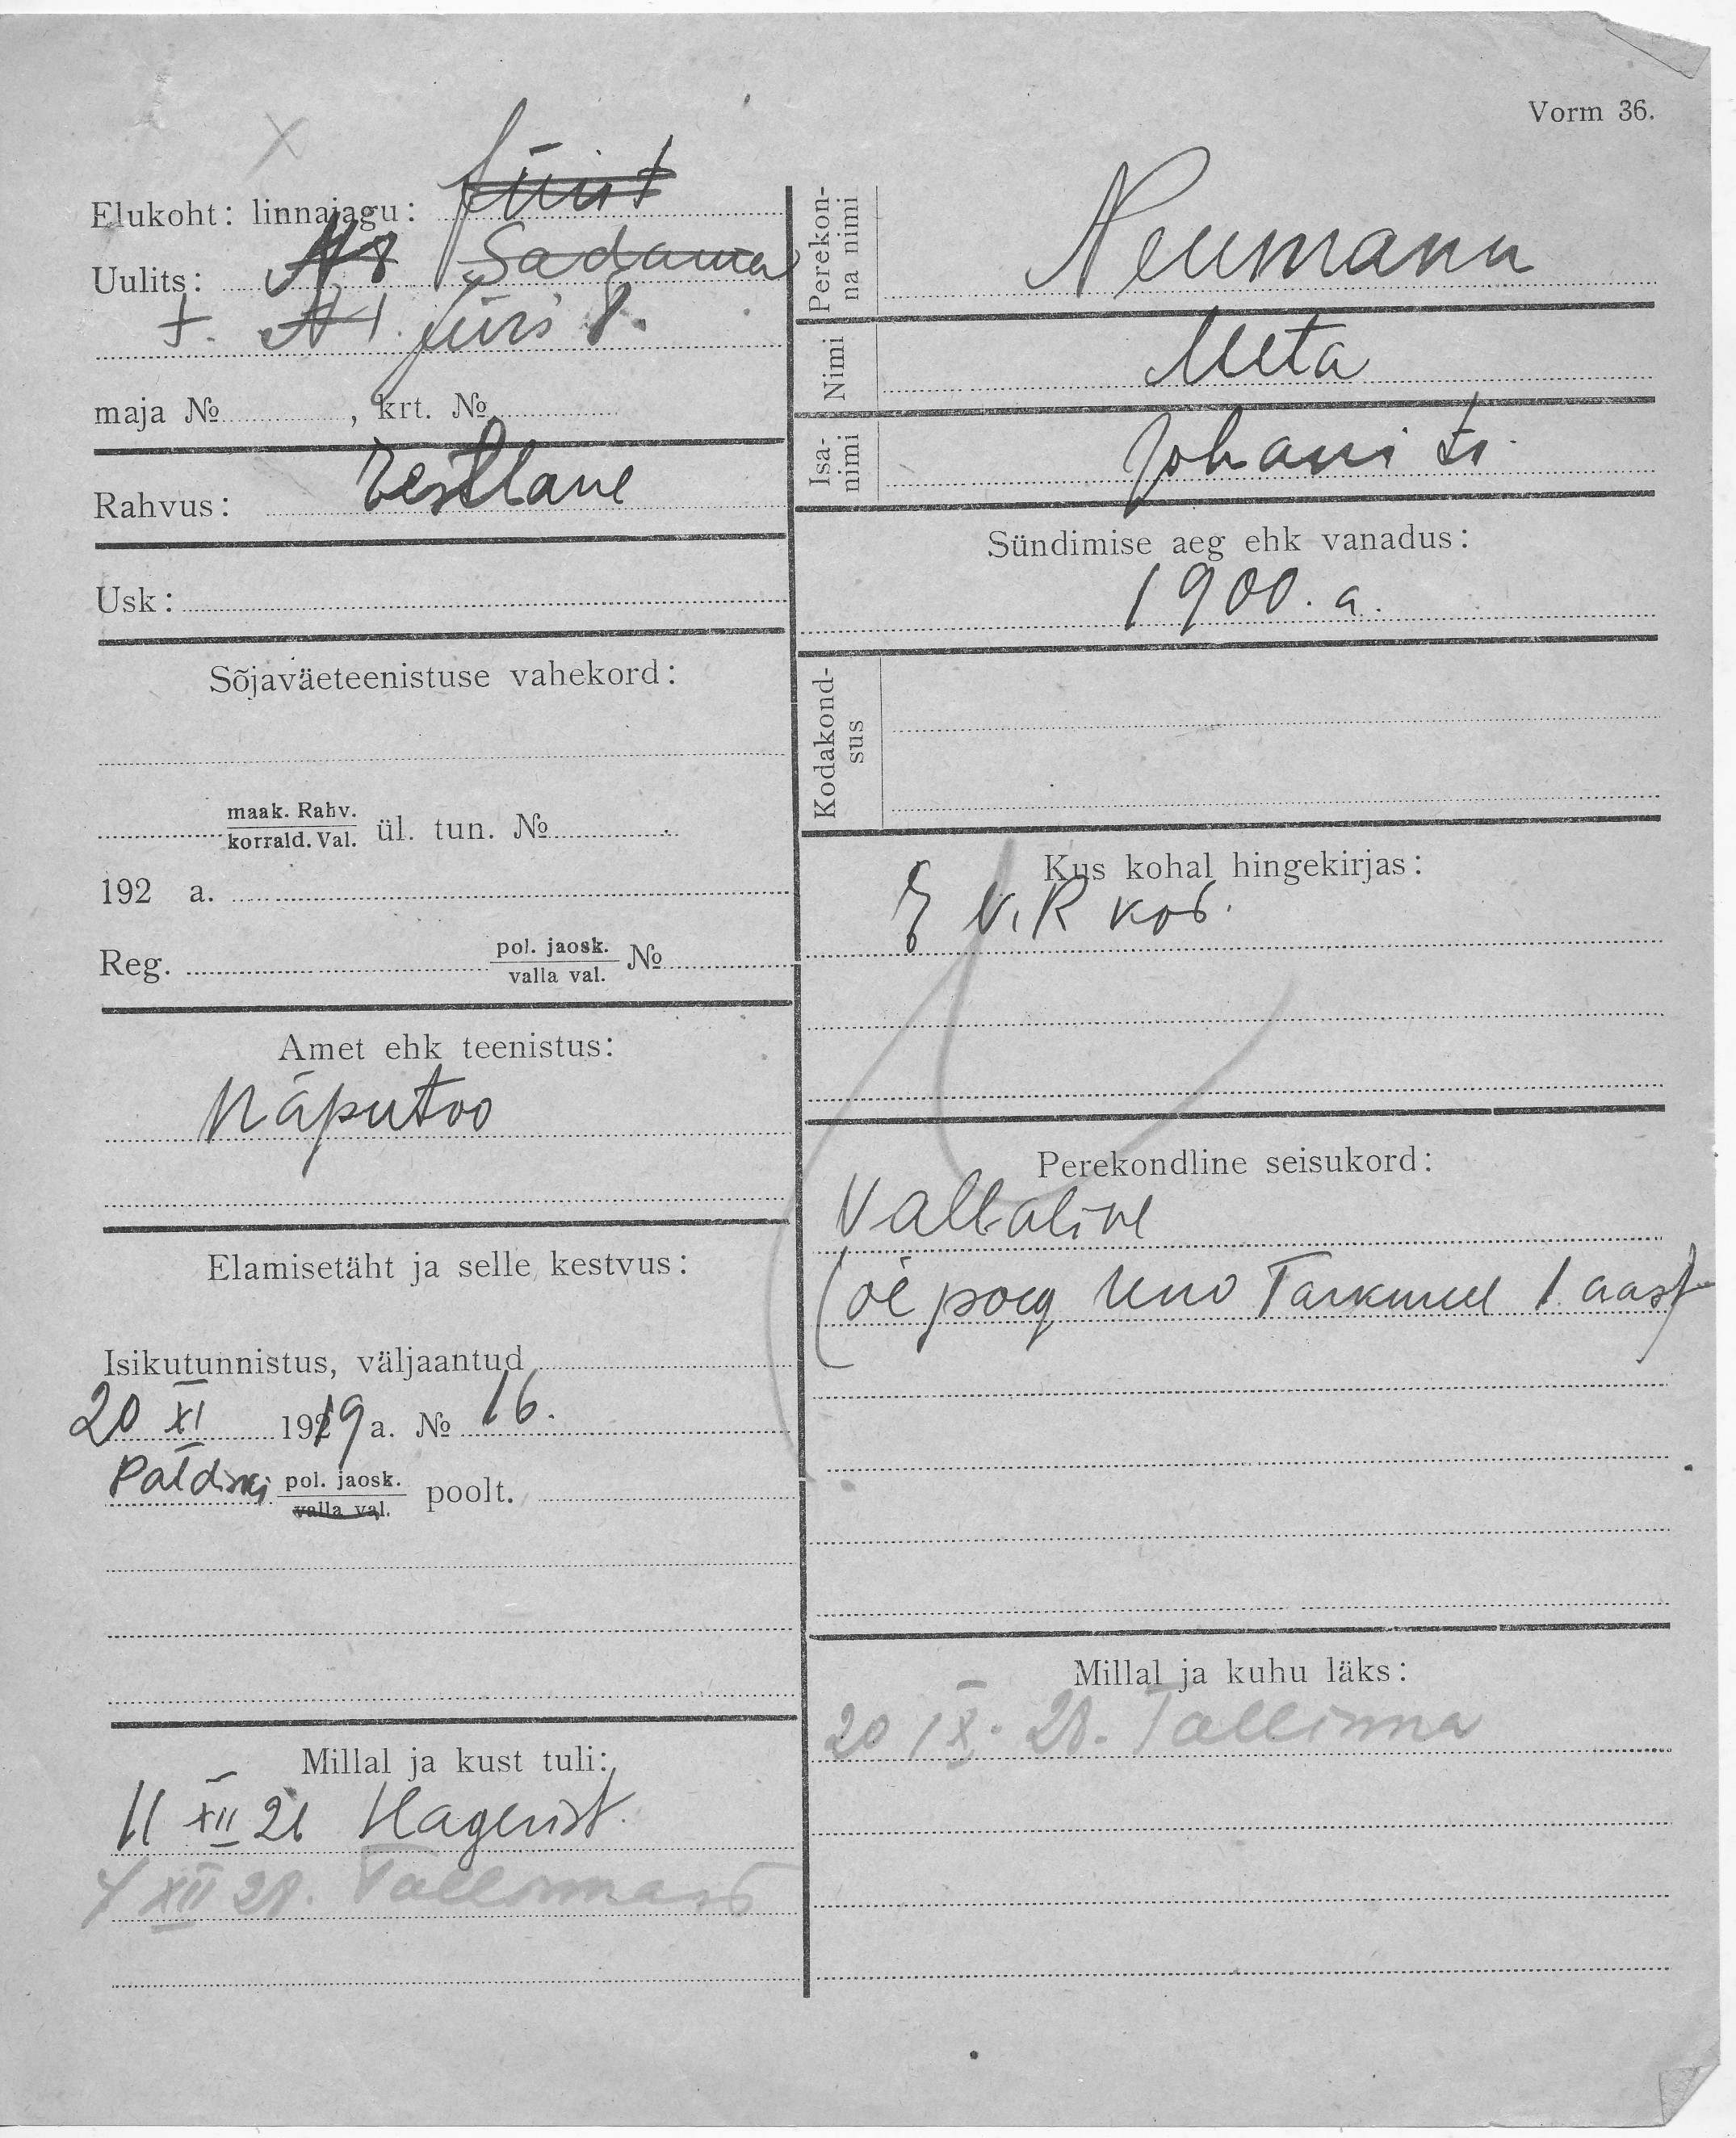 Vorm 36.
Elukoht: linnajagu:
Uulits: № 8 Sadama
+. № 1. Jüri 8.
maja № , krt. №
Rahvus: Eestlane
Usk:
Sõjaväeteenistuse vahekord:
maak. Rahv.
korrald. Val. ül. tun. №
192 a.
Reg. pol. jaosk.
valla val. №
Amet ehk teenistus:
Näputöö
Elamisetäht ja selle kestvus:
Isikutunnistus, väljaantud
20 XI 1919 a. № 16.
Paldiski pol. jaosk.
valla val. poolt.
Millal ja kust tuli:
11 XII 21 Hagerist.
XII 21. Tallinnast
Perekon-
na nimi
Neumann
Nimi
Meta
Isa-
nimi
Johani t.
Sündimise aeg ehk vanadus:
1900. a.
Kodakond-
sus
Kus kohal hingekirjas:
E V. R kod.
Perekondline seisukord:
Vallaline
(õe poeg Uno 1 aast)
Millal ja kuhu läks:
20 IX. 21. Tallinna